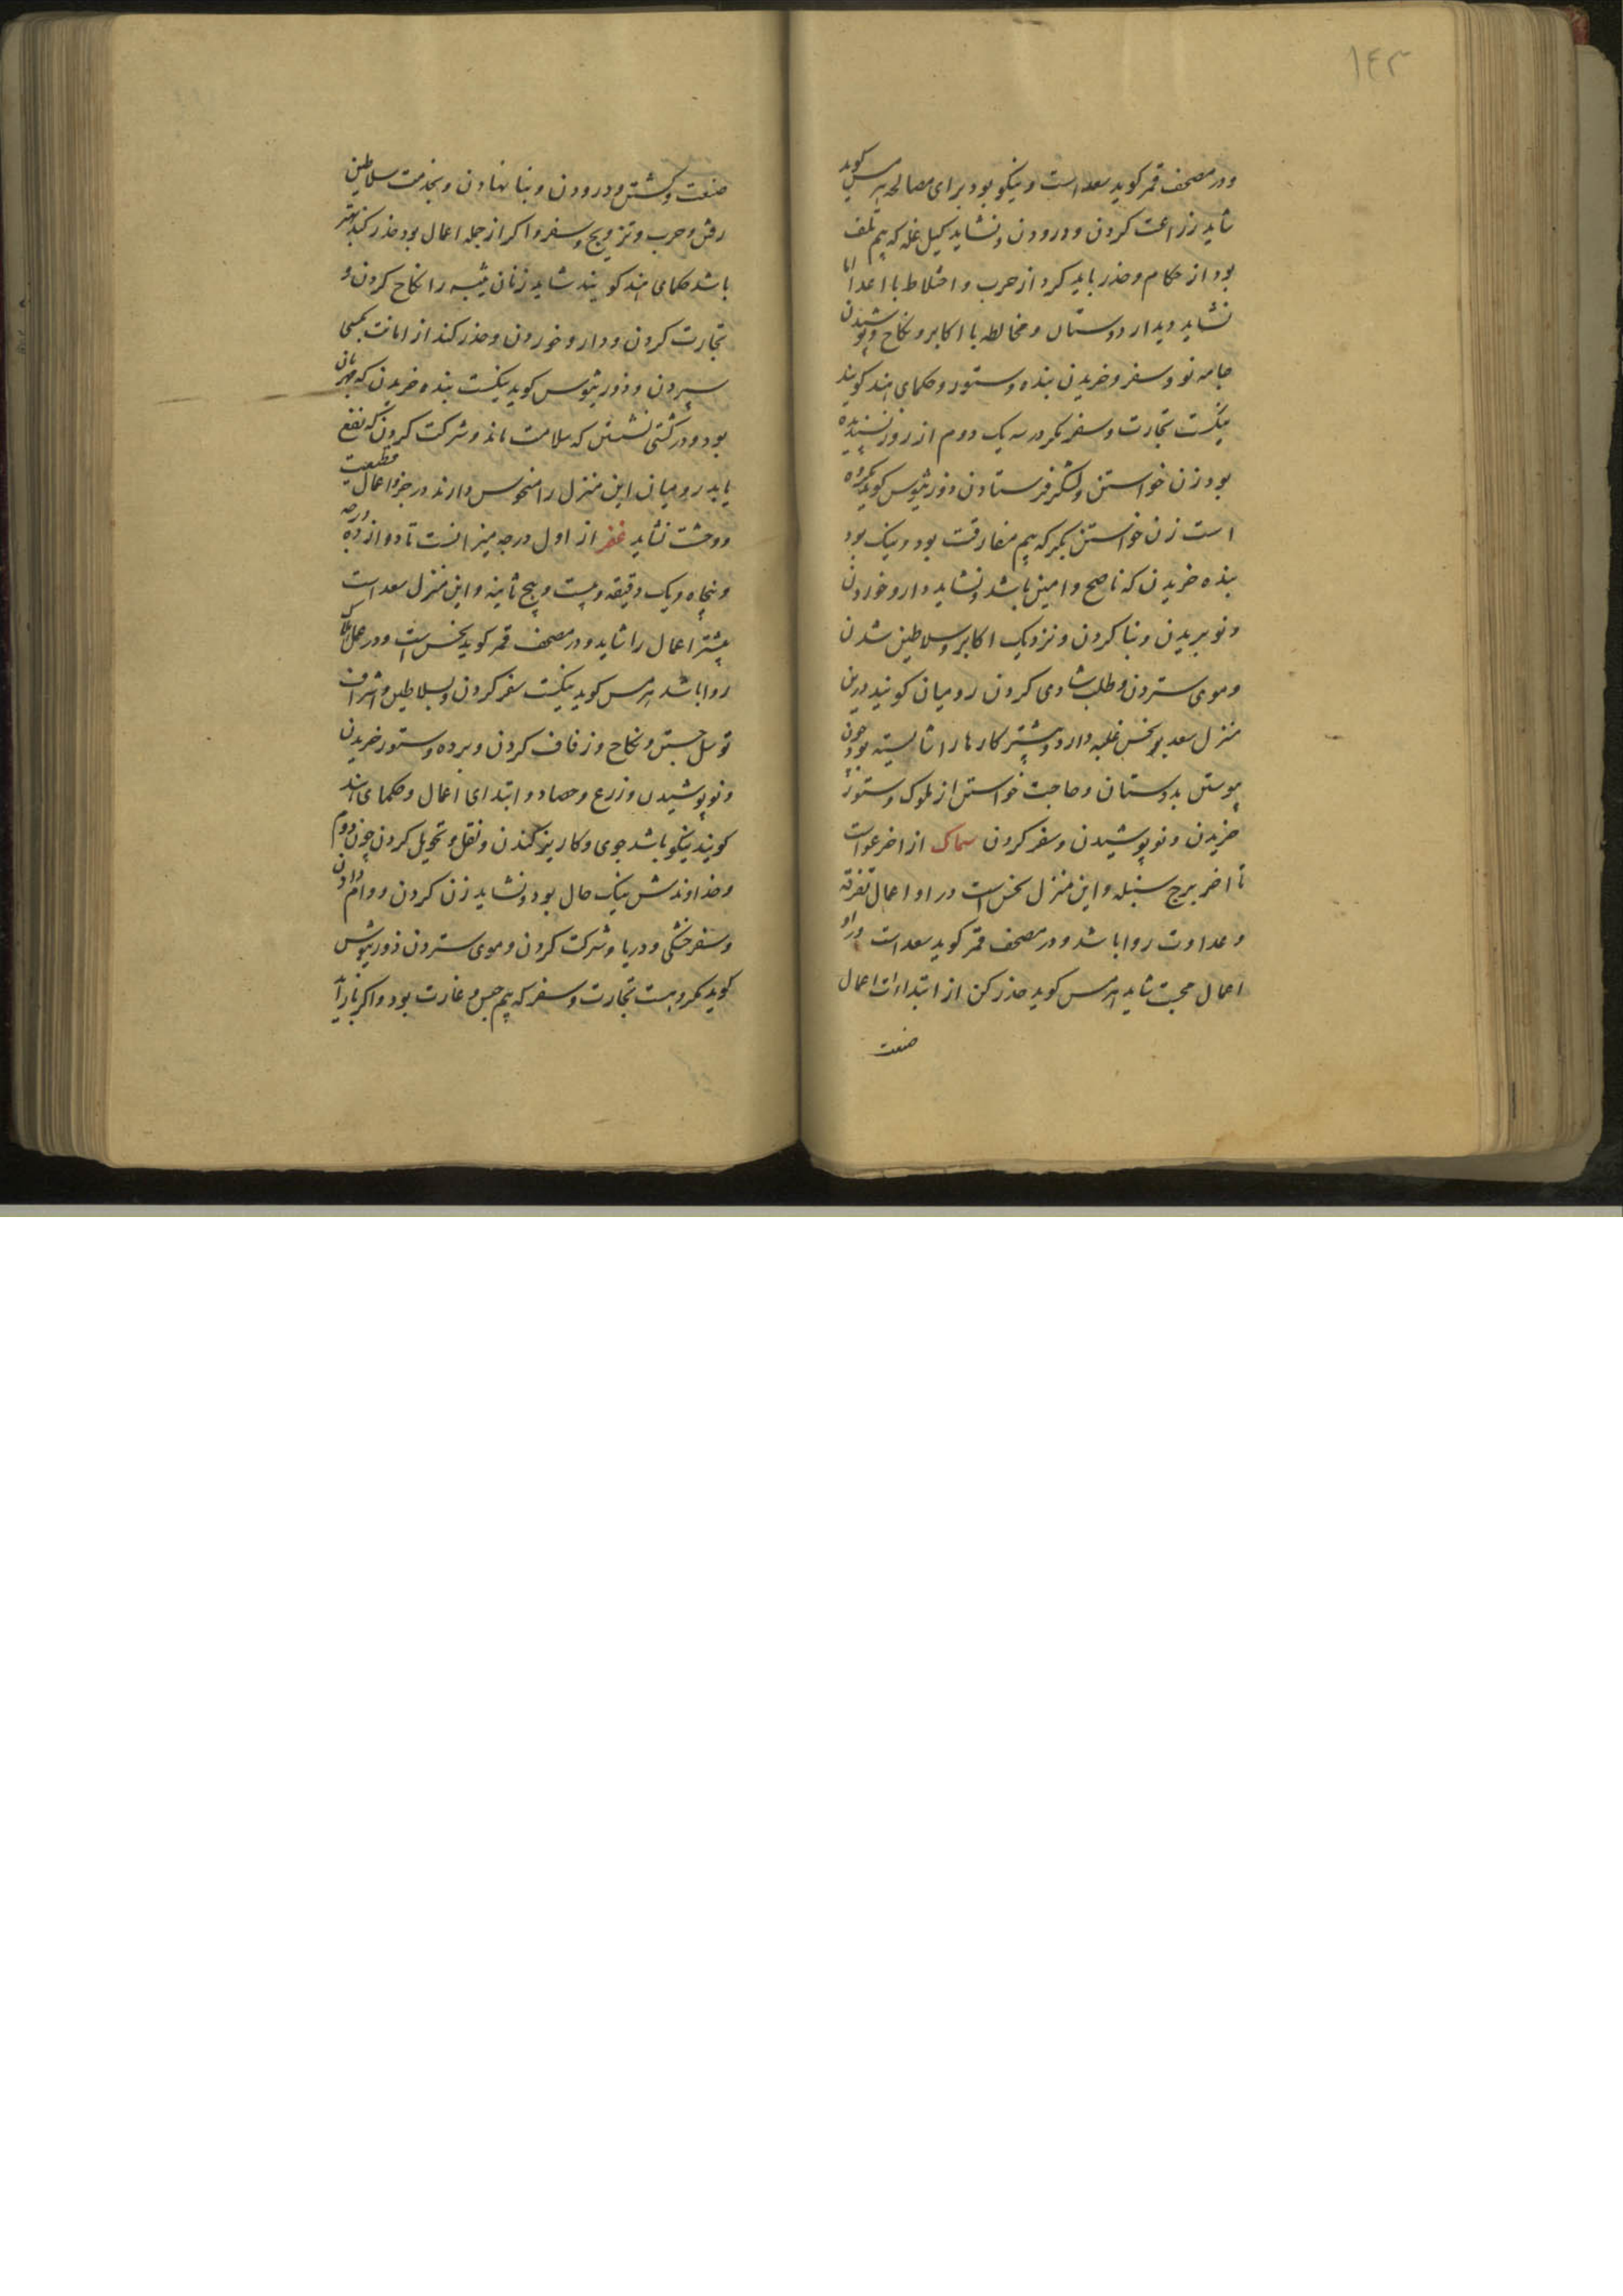 ١٤٣
ودر مصحف قمر کوید سعد است ونیکو بود برای مصالحه هرمس کوید
شاید زراعت کردن ودرودن ونشاید کیل غله که بیم تلف
بود از حکام وحذر باید کرد از حرب واختلاط با اعدا اما
نشاید دیدار دوستان ومخالطه با اکابر ونکاح وپوشیدن
جامه نو وسفر وخریدن بنده وستور وحکمای هند کویند
نیکست تجارت وسفر مکر در سه یک دوم از روز نسپندیده
بود زن خواستن ولشکر فرستادن وذورثیوس کوید مکروه
است زن خواستن بکر که بیم مفارقت بود ونیک بود
بنده خریدن که ناصح وامین باشد ونشاید دارو خوردن
ونو بریدن وبنا کردن ونزدیک اکابر وسلاطین شدن
وموی ستردن وطلب شادی کردن رومیان کویند درین
منزل سعد بر نحس غلبه دارد وبیشتر کارها را شایسته بود چون
پیوستن بدوستان وحاجت خواستن از ملوک وستور
خریدن ونو پوشیدن وسفر کردن سماک از اخر عوا است
تا اخر برج سنبله واین منزل نحس است در او اعمال تفرقه
وعداوت روا باشد ودر مصحف قمر کوید سعد است ودراو
اعمال محبت شاید هرمس کوید حذر کن از ابتداءات اعمال
صنعت
صنعت وکشتن ودرودن وبنا نهادن وبخدمت سلاطین
رفتن وحرب وتزویج وسفر واکر از جمله اعمال بود حذر کند بهتر
باشد حکمای هند کویند شاید زنان ثیبه را نکاح کردن و
تجارت کردن ودارو خوردن وحذر کند از امانت بکسی
سپردن وذورثیوس کوید نیکست بنده خریدن که مهربان
بود ودر کشتی نشستن که سلامت ماند وشرکت کردن که نفع
یابد رومیان این منزل را منحوس دارند در جز اعمال قطیعت
ووحشت نشاید غفر از اول درجه میزانست تا دوازده درجه
وپنجاه ویک دقیقه وبیست وپنج ثانیه واین منزل سعد است
بیشتر اعمال را شاید ودر مصحف قمر کوید نحس است ودر عمل هلاک
روا باشد هرمس کوید نیکست سفر کردن وبسلاطین واشراف
توسل جستن ونکاح وزفاف کردن وبرده وستور خریدن
ونو پوشیدن وزرع وحصاد وابتدای اعمال وحکمای هند
کویند نیکو باشد جوی وکاریز کندن ونقل وتحویل کردن چون دوم
وخداوندش نیک حال بود ونشاید زن کردن ووام دادن
وسفر خشکی ودریا وشرکت کردن وموی ستردن ذورثیوش
کوید مکروهست تجارت وسفر که بیم حبس وغارت بود واکر باز آید